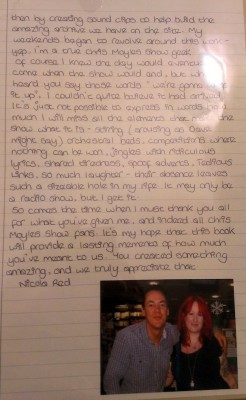 then by creating sound clips to help build the
amazing archive we have on the site. My
weekends began to revolve around this work -
yep, i'm a true Chris Moyles Show geek.
Of course I knew the day would eventually
come when the show would end, but when
heard you say those words "we're gonna
it up", I couldn't quite believe it had
It's just not possible to express in words how
much I will miss all the elements that made the
show what it is - (
might say) orchestral beds, competitions where
nothing can be won, jingles with ridiculous
lyrics, shared dreadness, spoof adverts, Tedious
Links, so much laughter - their absence leaves
such a sizeable hole in my life. It may only be
a radio show, but I get it.
So comes the time when I must thank you all
for what you've given me, and indeed all Chris
Moyles Show fans. It's my hope that this book
will provide a lasting memento of how much
you've meant to us. You created something
amazing, and we truly appreciate that
Nicola Red